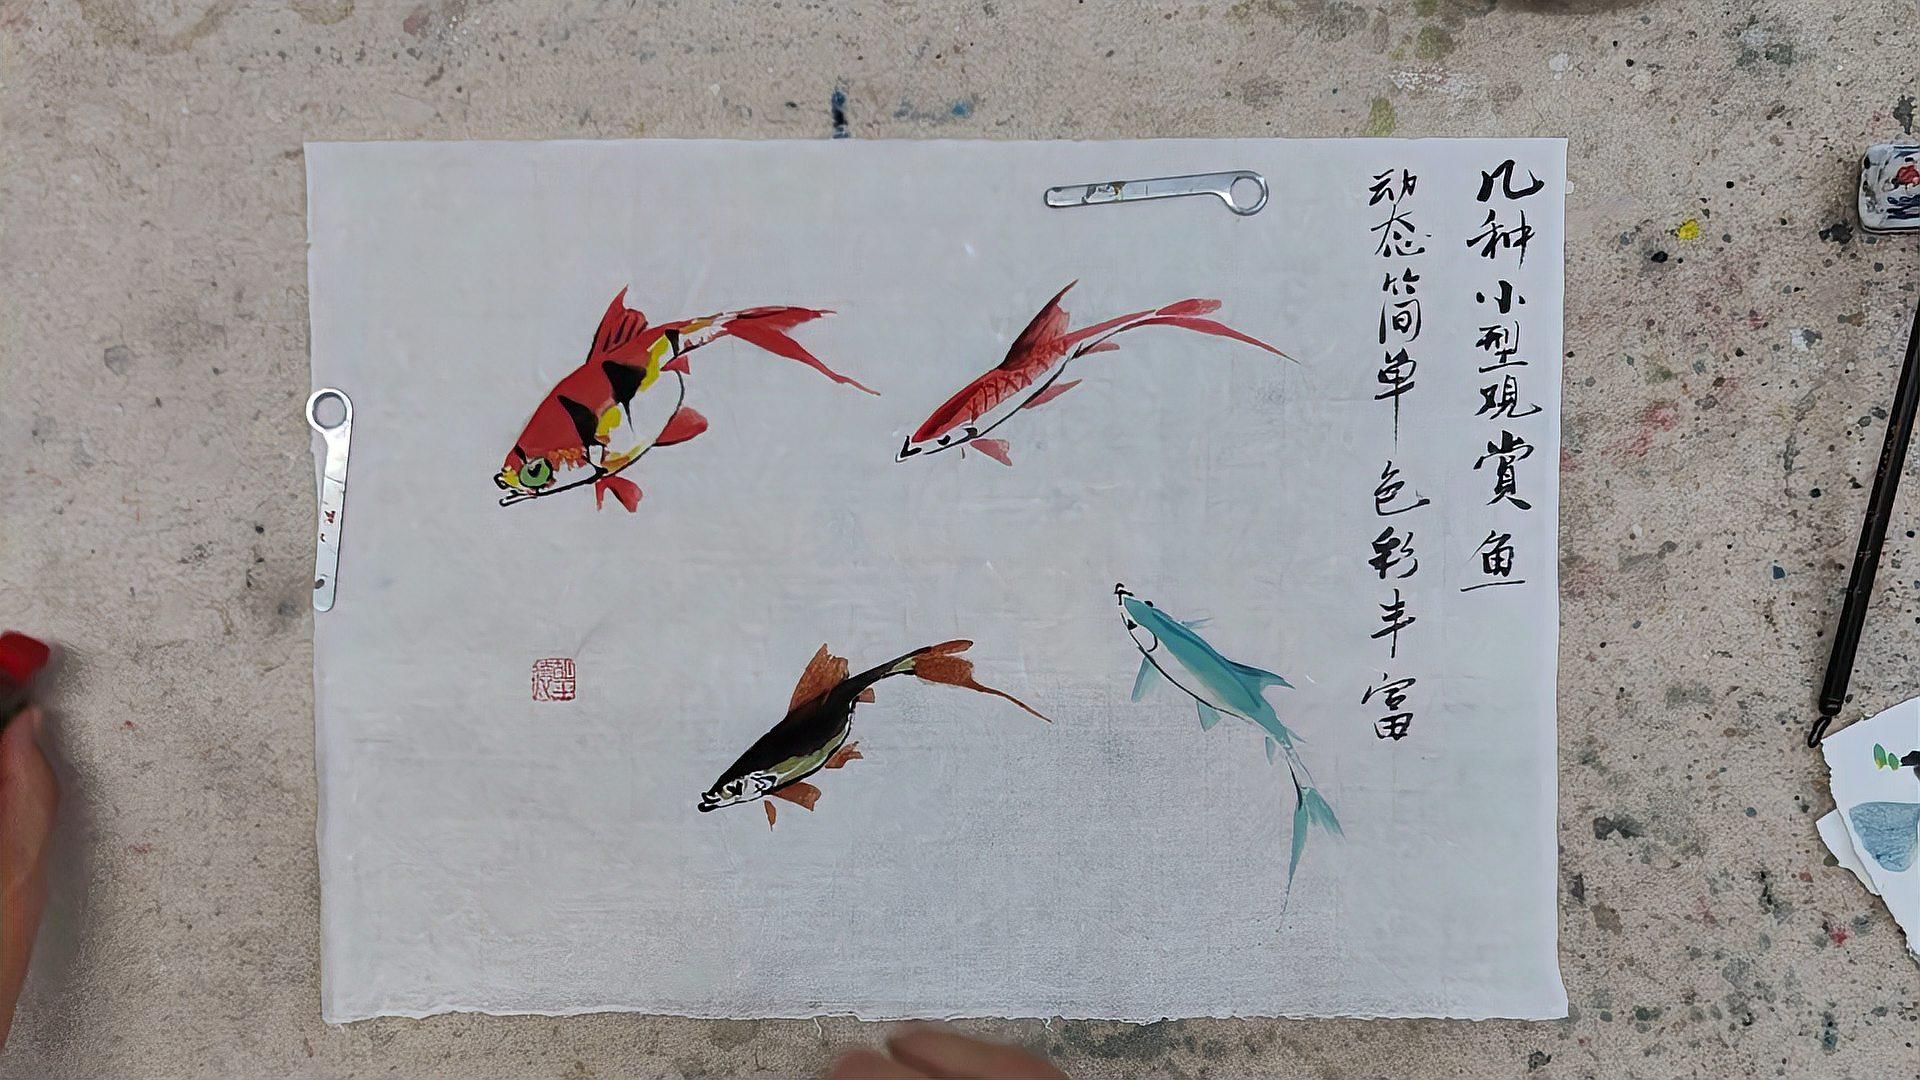 几种小型观赏鱼
动态简单色彩丰富